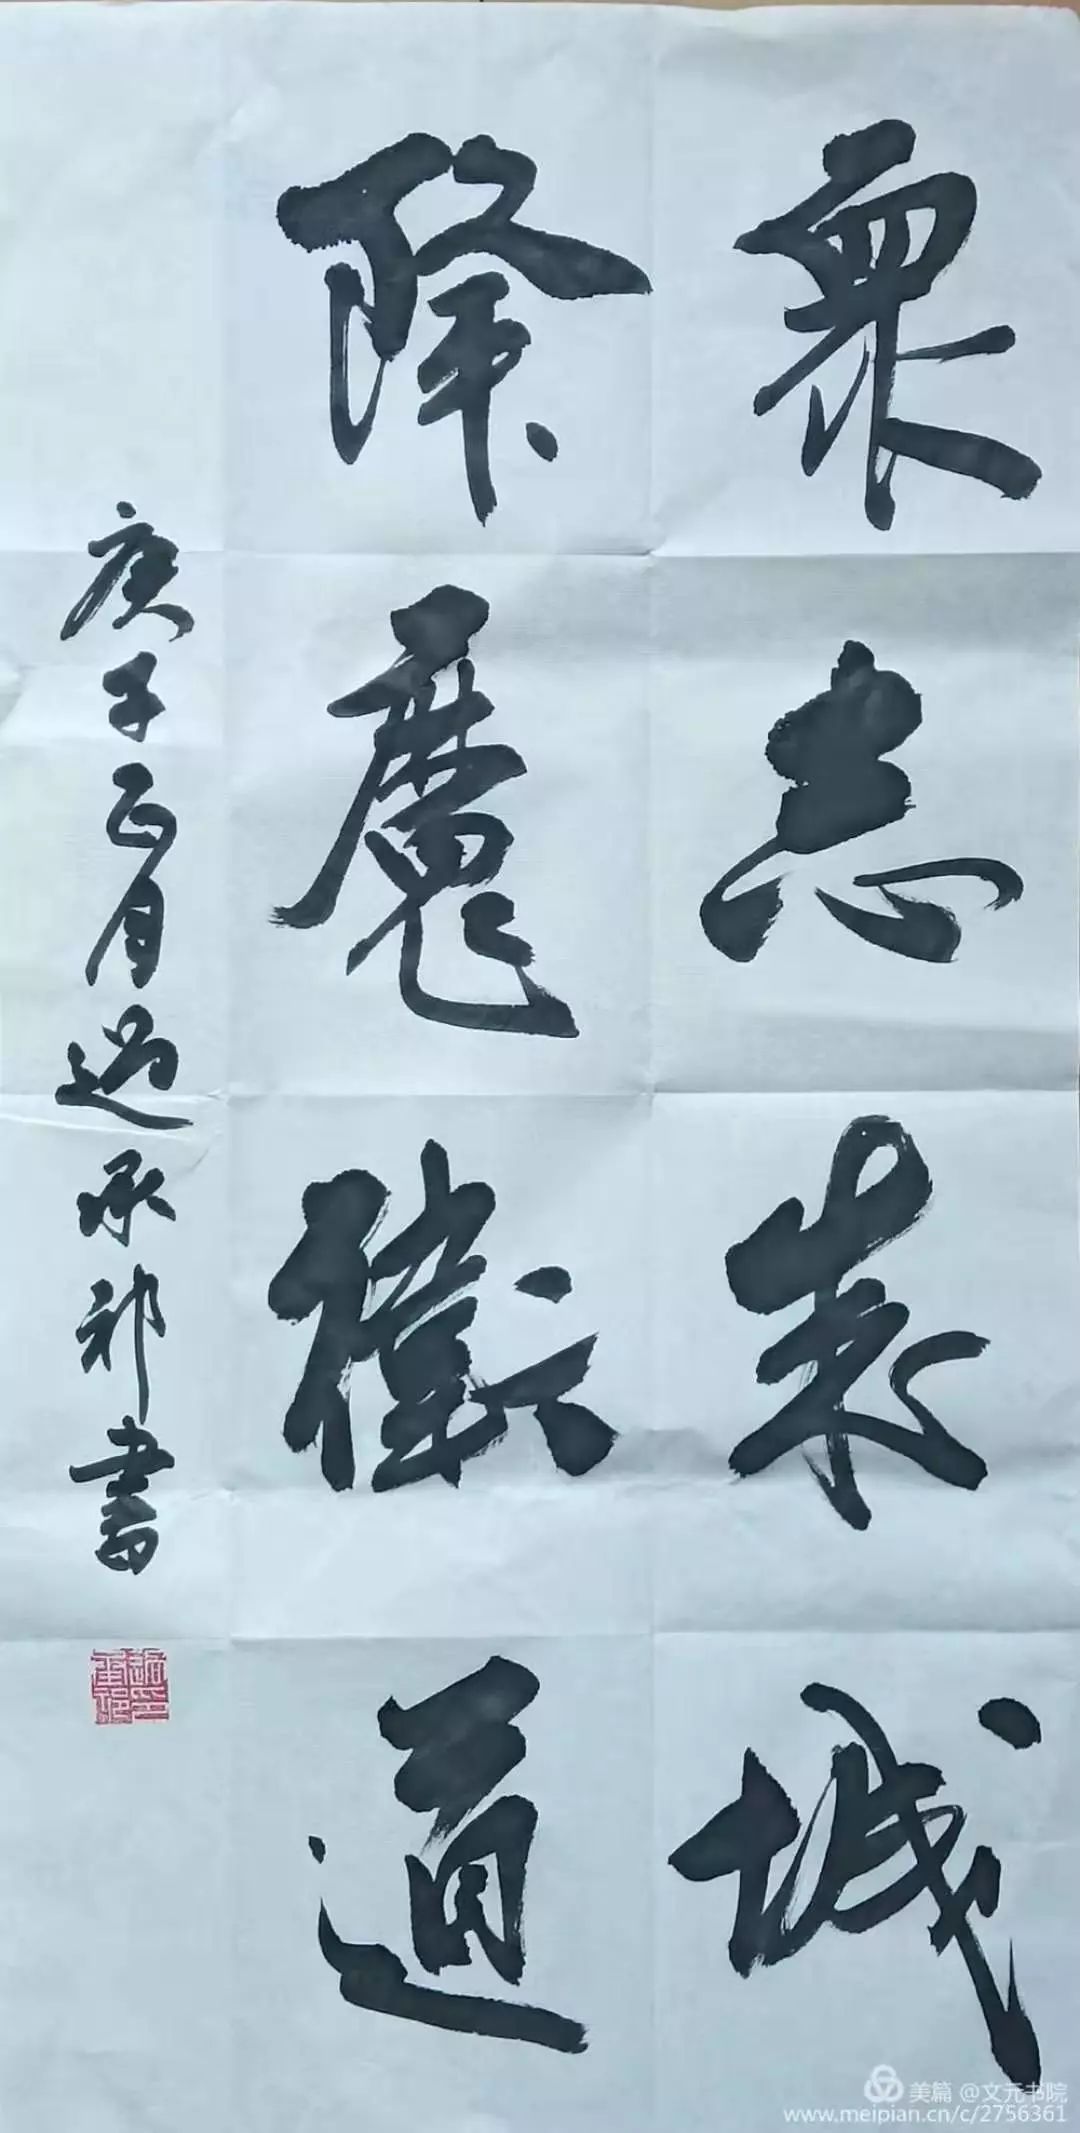 衆志成城
降魔衛道
庚子正月過承祁書
美篇 @文元书院
www.meipian.cn/c/2756361